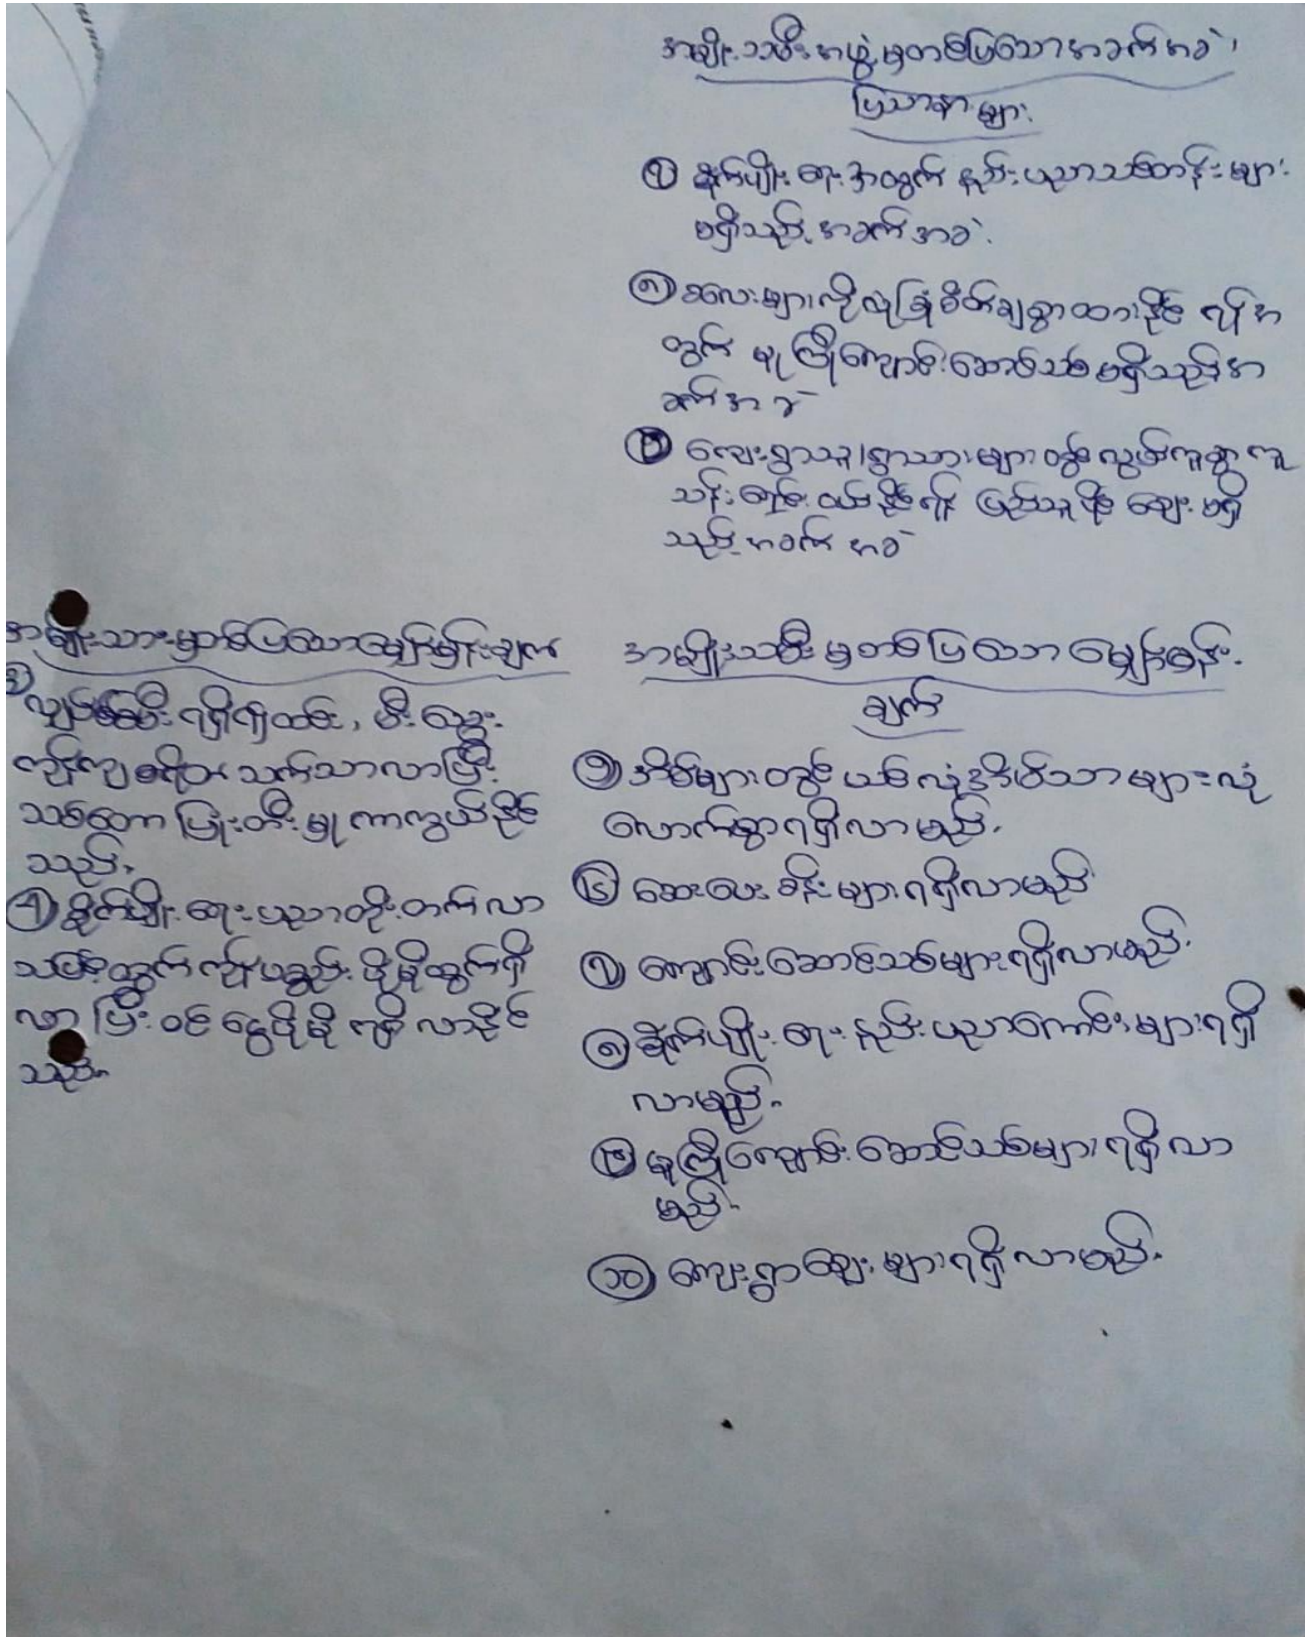 အမျိုးသမီးအဖွဲ့မှတင်ပြသောအခက်အခဲ၊
ပြဿနာများ
၇ စိုက်ပျိုးရေးအတွက် နည်းပညာသင်တန်းများ
မရှိသည့်အခက်အခဲ
၈ ကလေးများကိုလုံခြုံစိတ်ချစွာထားနိုင်ရန်အ
တွက် မူကြိုကျောင်းဆောင်သစ်မရှိသည့်အ
ခက်အခဲ
၉ ကျေးရွာသူ/ရွာသားများတွင် လွယ်ကူစွာကူ
သန်းရောင်းဝယ်နိုင်ရန် ပြည်သူပိုင်ဈေးမရှိ
သည့်အခက်အခဲ
အမျိုးသားမှတင်ပြသောမျှော်မှန်းချက်
၃ လျှပ်စစ်မီးရရှိ၍ထင်း၊ မီးသွေး
ကုန်ကျစရိတ်သက်သာလာပြီး
သစ်တောပြုန်းတီးမှုကာကွယ်နိုင်
သည်။
၄ စိုက်ပျိုးရေးပညာတိုးတက်လာ
သဖြင့်ထွက်ကုန်ပစ္စည်းပိုမိုထွက်ရှိ
လာပြီးဝင်ငွေပိုမိုရရှိလာနိုင်
သည်။
အမျိုးသမီးမှတင်ပြသောမျှော်မှန်း
ချက်
၅ အိမ်များတွင်ယင်လုံအိမ်သာများလုံ
လောက်စွာရရှိလာမည်။
၆ ဆေးပေးခန်းများရရှိလာမည်
၇ ကျောင်းဆောင်သစ်များရရှိလာမည်။
၈ စိုက်ပျိုးရေးနည်းပညာကောင်းများရရှိ
လာမည်။
၉ မူကြိုကျောင်းဆောင်သစ်များရရှိလာ
မည်။
၁၀ ကျေးရွာဈေးများရရှိလာမည်။